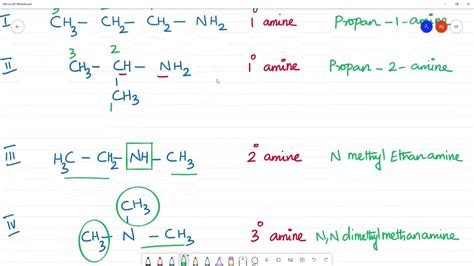 Microsoft Whiteboard
3 2 1
I CH₃ – CH₂ – CH₂ – NH₂ 1° amine Propan – 1 – amine
3 2
II CH₃ – CH – NH₂ 1° amine Propan – 2 – amine
CH₃
1
III H₃C – CH₂ – NH – CH₃ 2° amine N methyl Ethanamine
CH₃
IV CH₃ – N – CH₃ 3° amine N,N dimethylmethanamine